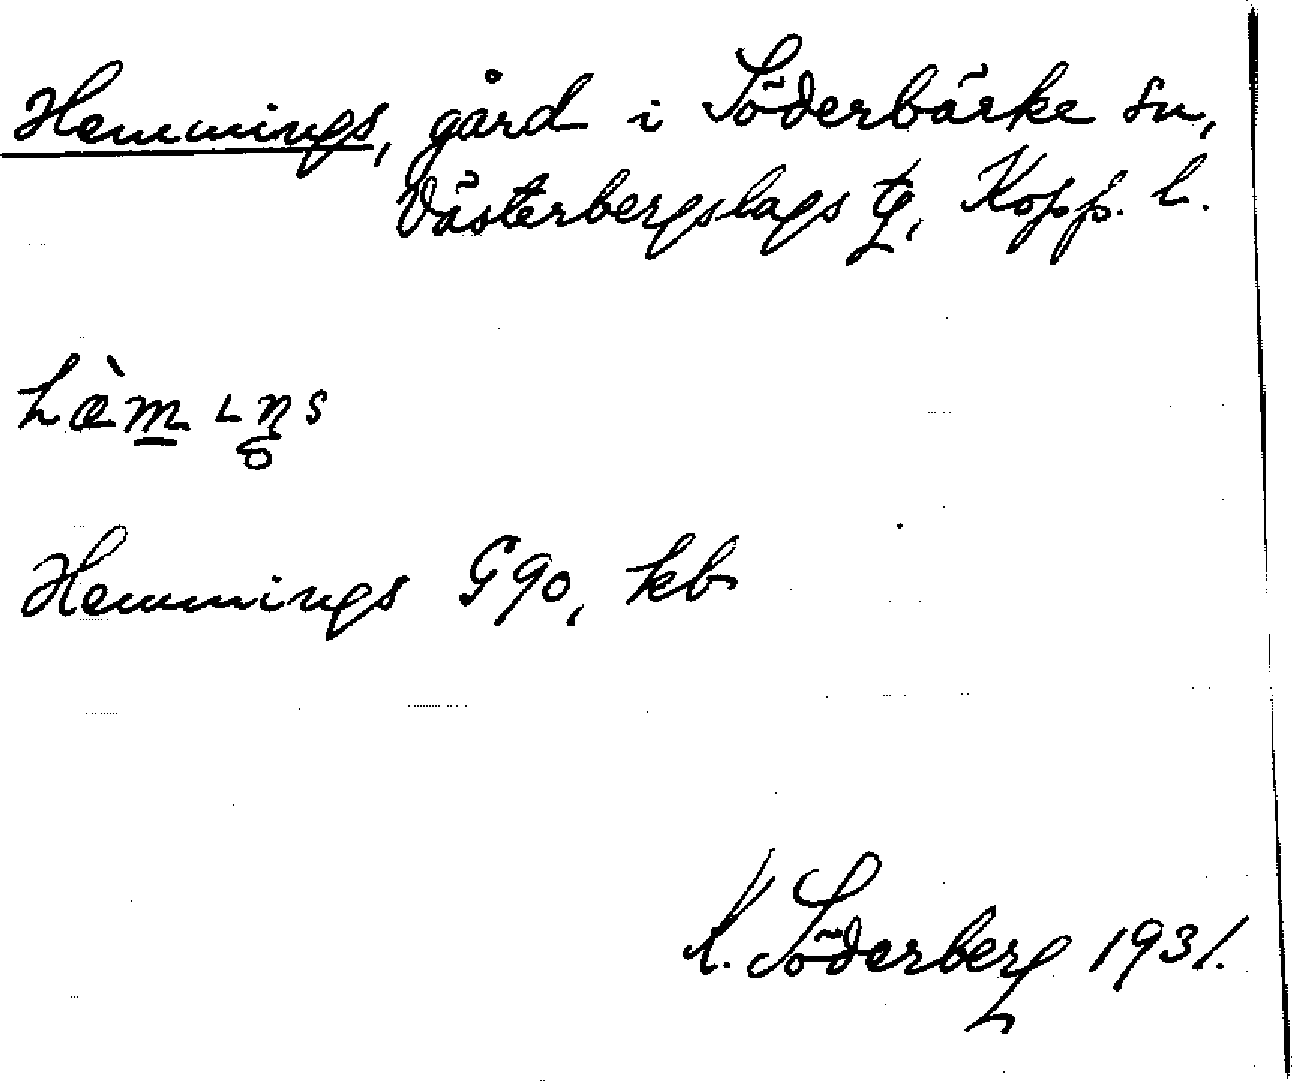 Hemmings, gård i Söderbärke sn,
Västerbergslags tg, Kopp. l.
hæ̀m̲ ɩn̥s
Hemmings G90, kb
K. Söderberg 1931.